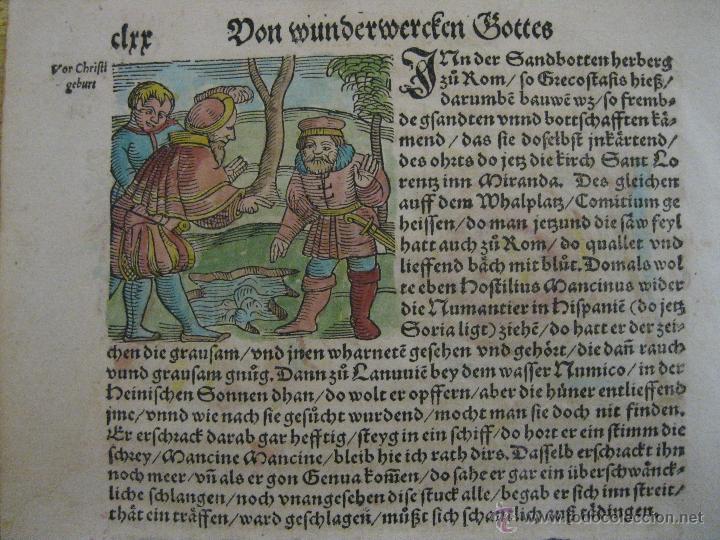 clxx Von wunderwercken Gottes
Vor Christi
geburt
INn der Sandbotten herberg
zů Rom/so Grecostasis hieß/
darumbē bauwen wz/so fremb-
de gsandten vnnd bottschafften kä-
mend/das sie doselbst jnkärtend/
des ohrts do jetz die kirch Sant Lo-
rentz inn Miranda. Des gleichen
auff dem Whalplatz/Comitium ge
heissen/do man jetzund die säw feyl
hatt auch zů Rom/do quallet vnd
lieffend bäch mit blůt. Domals wol
te eben Hostilius Mancinus wider
die Numantier in Hispaniē (do jetz
Soria ligt) ziehē/do hatt er der zei-
chen die grausam/vnd jnen wharnetē gesehen vnd gehört/die dañ rauch
vund grausam gnůg. Dann zů Lanuuiē bey dem wasser Numico/in der
Heinischen Sonnen dhan/do wolt er opffern/aber die hüner entlieffend
jme/vnnd wie nach sie gesůcht wurdend/mocht man sie doch nit finden.
Er erschrack darab gar hefftig/steyg in ein schiff/do hort er ein stimm die
schrey/Mancine Mancine/bleib hie ich rath dirs. Dasselb erschrackt ihn
noch meer/vñ als er gon Genua kom̄en/do sahe er gar ein überschwänck-
liche schlangen/noch vnangesehen dise stuck alle/begab er sich inn streit/
thät ein träffen/ward geschlagen/můßt sich schantlich auß tädingen.
todocoleccion.net